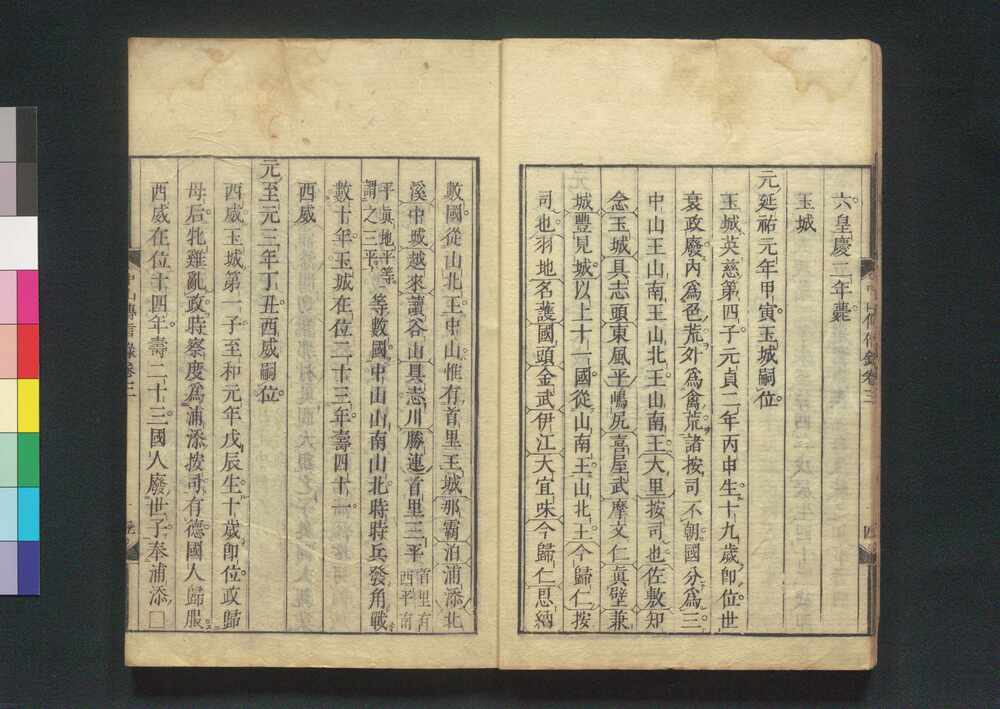 六皇慶二年薨
玉城
元延祐元年甲寅玉城嗣位
玉城英慈第四子元貞二年丙申生十九歲卽位世
衰政廢內爲色荒外爲禽荒諸按司不朝國分爲三
中山王山南王山北王山南王大里按司也佐敷知
念玉城具志頭東風平嶋尻喜屋武摩文仁眞壁兼
城豐見城以上十一國從山南王山北王今歸仁按
司也羽地名護國頭金武伊江大宜味今歸仁恩納
數國從山北王中山惟有首里王城那霸泊浦添北
溪中城越來讀谷山具志川勝連首里三平首里有西平南
平眞地平等謂之三平等數國中山山南山北時時兵發角戰
數十年玉城在位二十三年壽四十一
西威
元至元三年丁丑西威嗣位
西威玉城第一子至和元年戊辰生十歲卽位政歸
母后牝雞亂政時察度爲浦添按司有德國人歸服
西威在位十四年壽二十三國人廢世子奉浦添□
中山傳信錄卷三